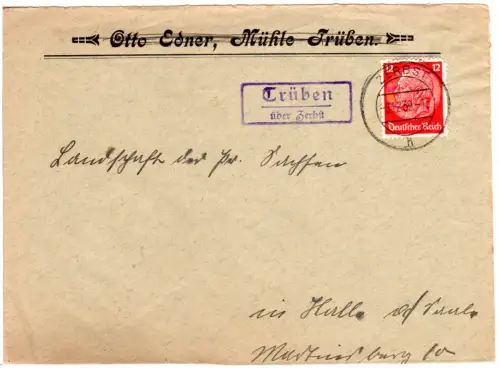 Otto Edner, Mühle Trüben.
Trüben
über Zerbst
ZERBST
12 12
Deutsches Reich
h
Landschaft der Pr. Sachsen
in Halle a/ Saale
Martinsberg 10